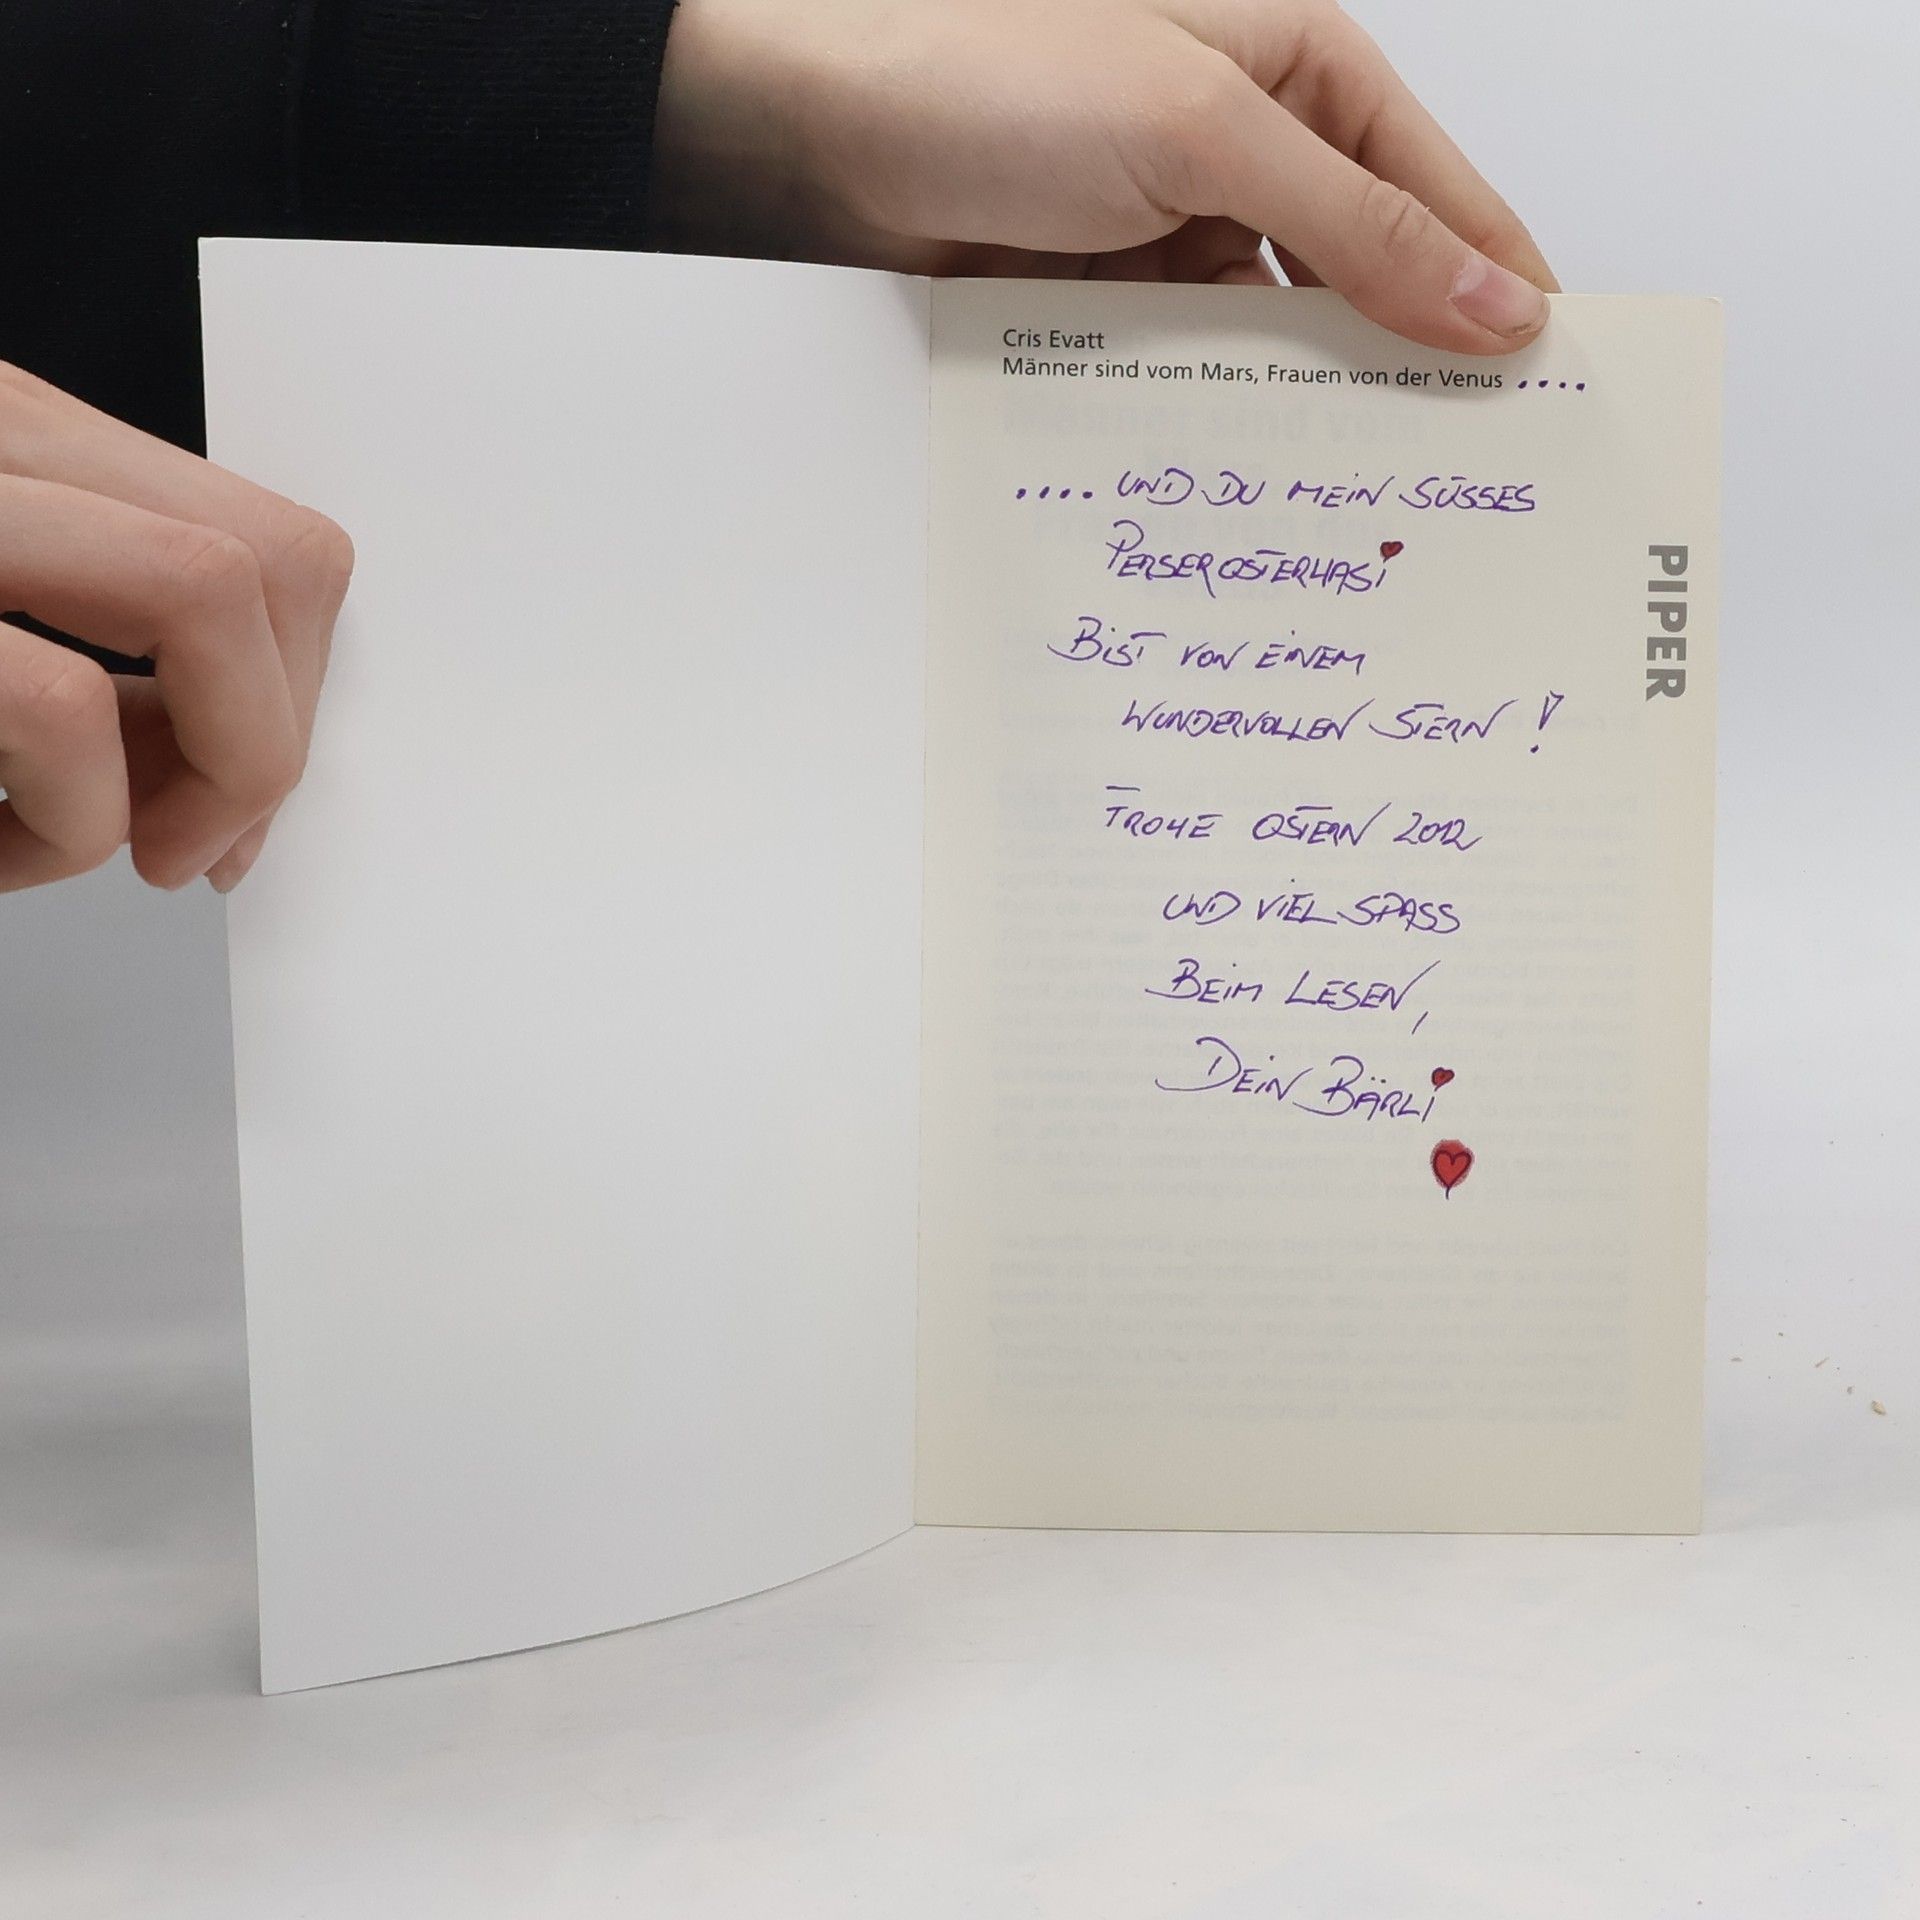 Cris Evatt
Männer sind vom Mars, Frauen von der Venus ....
.... UND DU MEIN SÜSSES
PERSEROSTERHASI
BIST VON EINEM
WUNDERVOLLEN STERN !
FROHE OSTERN 2012
UND VIEL SPASS
BEIM LESEN,
DEIN BÄRLI
PIPER